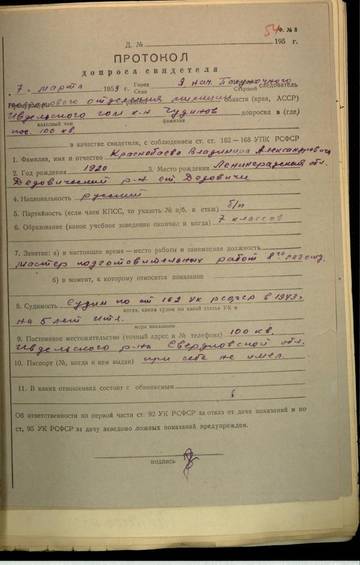 54
Ф. № 8
Д. № 195 г.
ПРОТОКОЛ
допроса свидетеля
7. марта 1959 г. Город Я нач. Полуночного
Село Старший следователь
отделения милиции области (края, АССР)
Ивдельского к-н Чудинов допросил в (где)
классный чин фамилия
пос. 100 кв.
в качестве свидетеля, с соблюдением ст. ст. 162—168 УПК РСФСР
1. Фамилия, имя и отчество Краснобаева Владимира Александровича
2. Год рождения 1920 3. Место рождения Ленинградская обл.
Дедовический р-н ст. Дедовичи
4. Национальность русский
5. Партийность (если член КПСС, то указать № п/б. и стаж) б/п
6. Образование (какое учебное заведение окончил и когда) 7 классов
7. Занятие: а) в настоящее время — место работы и занимаемая должность
мастер подготовительных работ
б) в момент, к которому относятся показания
8. Судимость Судим по ст 162 УК РСФСР в 1943г.
когда, каким судом, по какой статье УК и
на 5 лет итл.
мера наказания
9. Постоянное местожительство (точный адрес и № телефона) 100 кв.
Ивдельского р-на Свердловской обл.
10. Паспорт (№, когда и кем выдан) при себе не имел.
11. В каких отношениях состоит с обвиняемым
Об ответственности по первой части ст. 92 УК РСФСР за отказ от дачи показаний и по
ст. 95 УК РСФСР за дачу заведомо ложных показаний предупрежден.
подпись